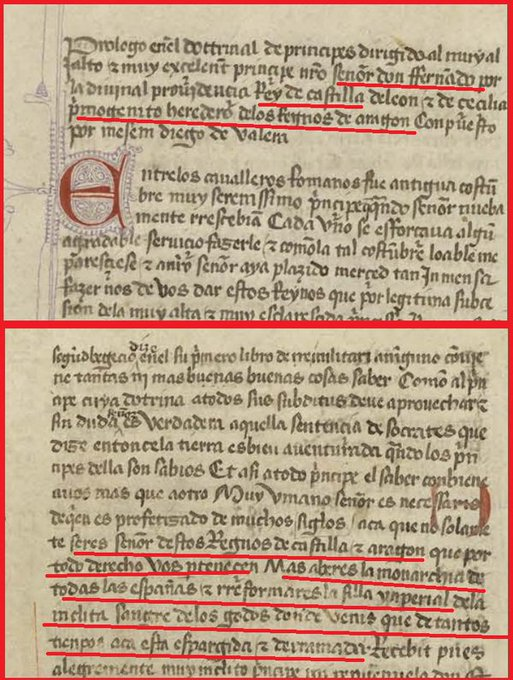 Prologo enel dottrinal de principes dirigido al muy al
to & muy excelent principe nro señor don ffernãdo por
la diuinal prouidencia Rey de castilla de leon & de cecilia
pmogenito heredero delos Regnos de aragon Conpuesto
por mosem diego de Valera
Entrelos caualleros Romanos fue antigua costũ
bre muy serenissimo pncipe qñdo señor nueua
mente rrescebian Cada vno se esforçaua algũ
agradable seruicio fazerle & como la tal costũbre loable me
paresciese & a nro señor aya plazido merced tan Inmensa
fazer nos de vos dar estos Reynos que por legitima subce
sion dela muy alta & muy esclarescida
segũd vegecio dize enel su pmero libro de rre militari a ninguno cõuie
ne tantas ni mas buenas cosas saber Como al pñ
cipe cuya dotrina a todos sus subditus deue aprouechar &
sin duda es Verdadera aquella sentencia de socrates que
dize entonce la tierra es bien auenturada qñdo los pñ
cipes della son sabios Et asi a todo pncipe el saber conbiene
a vos mas que a otro Muy vmano señor es necessario
de qen es profetizado de muchos siglos aca que no solamẽ
te seres señor destos Regnos de castilla & aragon que por
todo derecho Vos ptenecen Mas aberes la monarchia de
todas las españas & rreformares la silla ynperial dela
inclita sangre delos godos donde venis que de tantos
tienpos aca esta espargida & derramada Recebit pues
alegremente muy inclito pncipe